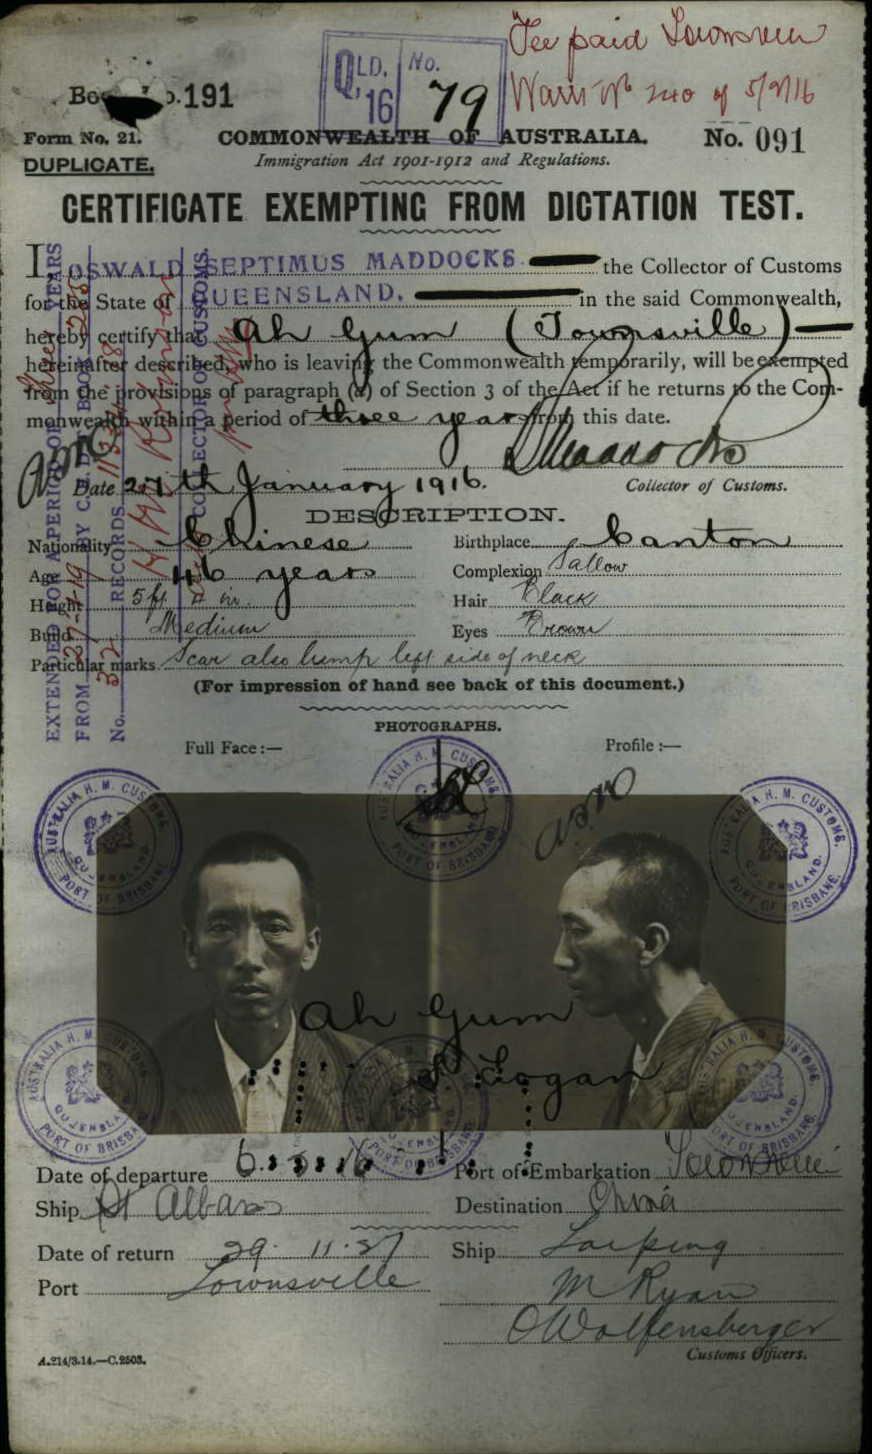 Fee paid Townsville
QLD. No.
16 79
Warrt No 240 of 5/2/16
191
Form No. 21.
COMMONWEALTH OF AUSTRALIA.
No. 091
DUPLICATE.
Immigration Act 1901-1912 and Regulations.
CERTIFICATE EXEMPTING FROM DICTATION TEST.
I, OSWALD SEPTIMUS MADDOCKS the Collector of Customs
for the State of QUEENSLAND. in the said Commonwealth,
hereby certify that Ah Gum (Townsville)
hereinafter described, who is leaving the Commonwealth temporarily, will be exempted
from the provisions of paragraph (a) of Section 3 of the Act if he returns to the Com-
monwealth within a period of three years from this date.
Date 27th January 1916.
Collector of Customs.
DESCRIPTION.
Nationality Chinese Birthplace Canton
Age 46 years Complexion Sallow
Height 5 ft in. Hair Black
Build Medium Eyes Brown
Particular marks Scar also lump left side of neck
(For impression of hand see back of this document.)
EXTENDED FOR A PERIOD OF three YEARS
FROM 27-1-19 BY C. BOOK
No. RECORDS
COLLECTOR OF CUSTOMS.
PHOTOGRAPHS.
Full Face :— Profile :—
AUSTRALIA H. M. CUSTOMS. QUEENSLAND. PORT OF BRISBANE.
AUSTRALIA H. M. CUSTOMS. QUEENSLAND. PORT OF BRISBANE.
AUSTRALIA H. M. CUSTOMS. QUEENSLAND. PORT OF BRISBANE.
Ah Gum
Logan
AUSTRALIA H. M. QUEENSLAND. PORT OF BRISBANE.
AUSTRALIA H. M. CUSTOMS. QUEENSLAND. PORT OF BRISBANE.
Date of departure 6. 16 Port of Embarkation Townsville
Ship St Albans Destination China
Date of return 29. 11. 27 Ship Taiping
Port Townsville M Ryan
O Wolfensberger
Customs Officers.
A.214/3.14.—C.2503.